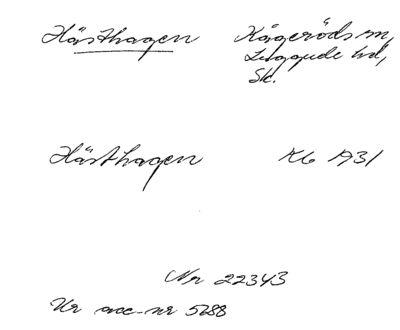 Hästhagen Kågeröds sn,
Luggude hd,
Sk.
Hästhagen Kb 1931
Nr 22343
Ur acc-nr 5288